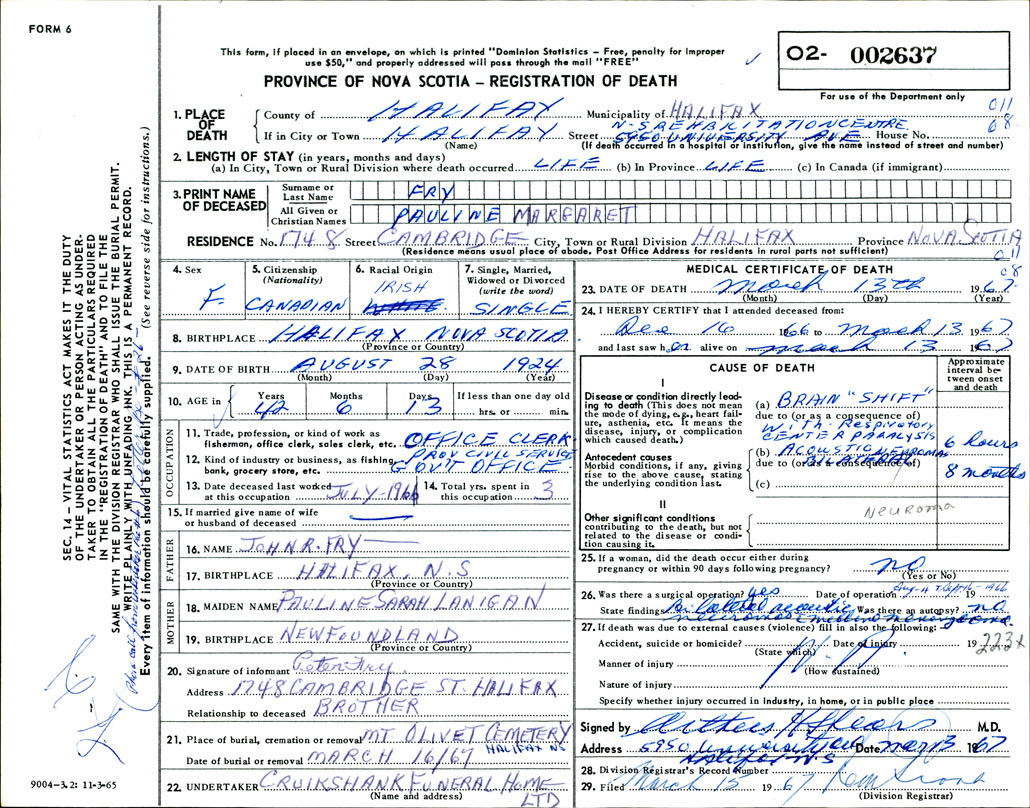 FORM 6
This form, if placed in an envelope, on which is printed "Dominion Statistics – Free, penalty for improper
use $50," and properly addressed will pass through the mail "FREE"
02- 002637
For use of the Department only
PROVINCE OF NOVA SCOTIA – REGISTRATION OF DEATH
011
08
1. PLACE OF DEATH
County of HALIFAX Municipality of HALIFAX
N-S REHABILITATION CENTRE
If in City or Town HALIFAX Street 5950 UNIVERSITY AVE House No.
(Name) (If death occurred in a hospital or institution, give the name instead of street and number)
2. LENGTH OF STAY (in years, months and days)
(a) In City, Town or Rural Division where death occurred LIFE (b) In Province LIFE (c) In Canada (if immigrant)
3. PRINT NAME OF DECEASED
Surname or Last Name FRY
All Given or Christian Names PAULINE MARGARET
RESIDENCE No. 1748 Street CAMBRIDGE City, Town or Rural Division HALIFAX Province NOVA SCOTIA
(Residence means usual place of abode. Post Office Address for residents in rural parts not sufficient)
011
08
4. Sex F.
5. Citizenship (Nationality) CANADIAN
6. Racial Origin IRISH WHITE
7. Single, Married, Widowed or Divorced (write the word) SINGLE
8. BIRTHPLACE HALIFAX NOVA SCOTIA
(Province or Country)
9. DATE OF BIRTH AUGUST 28 1924
(Month) (Day) (Year)
10. AGE in Years 42 Months 6 Days 13 If less than one day old hrs. or min.
OCCUPATION
11. Trade, profession, or kind of work as
fisherman, office clerk, sales clerk, etc. OFFICE CLERK
12. Kind of industry or business, as fishing, PROV CIVIL SERVICE
bank, grocery store, etc. GOV'T OFFICE
13. Date deceased last worked at this occupation JULY-1966
14. Total yrs. spent in this occupation 3
15. If married give name of wife
or husband of deceased
FATHER
16. NAME JOHN R. FRY
17. BIRTHPLACE HALIFAX, N.S
(Province or Country)
MOTHER
18. MAIDEN NAME PAULINE SARAH LANIGAN
19. BIRTHPLACE NEWFOUNDLAND
(Province or Country)
20. Signature of informant Peter Fry
Address 1748 CAMBRIDGE ST. HALIFAX
Relationship to deceased BROTHER
21. Place of burial, cremation or removal MT OLIVET CEMETERY
HALIFAX NS
Date of burial or removal MARCH 16/67
22. UNDERTAKER CRUIKSHANK FUNERAL HOME LTD
(Name and address)
MEDICAL CERTIFICATE OF DEATH
23. DATE OF DEATH March 13th 1967
(Month) (Day) (Year)
24. I HEREBY CERTIFY that I attended deceased from:
Dec 16 1966 to March 13 1967
and last saw her alive on March 13 1967
CAUSE OF DEATH
Approximate interval between onset and death
I
Disease or condition directly leading to death (This does not mean
the mode of dying, e.g., heart failure, asthenia, etc. It means the
disease, injury, or complication
which caused death.)
(a) BRAIN "SHIFT"
due to (or as a consequence of)
WITH RESPIRATORY
CENTER PARALYSIS 6 hours
Antecedent causes
Morbid conditions, if any, giving
rise to the above cause, stating
the underlying condition last.
(b) ACOUSTIC NEUROMAS
due to (or as a consequence of)
BILATERAL 8 months
(c)
II
Neuroma
Other significant conditions
contributing to the death, but not
related to the disease or condition causing it.
25. If a woman, did the death occur either during
pregnancy or within 90 days following pregnancy? no
(Yes or No)
26. Was there a surgical operation? yes Date of operation Aug-4 + Sept- 1966 19
State findings Bilateral acoustic Was there an autopsy? no
neuromas
27. If death was due to external causes (violence) fill in also the following:
Accident, suicide or homicide? Date of injury 19
(State which)
223X
Manner of injury
(How sustained)
Nature of injury
Specify whether injury occurred in industry, in home, or in public place
Signed by M.D.
Address 5950 University Ave Date Mar 13 1967
Halifax N.S
28. Division Registrar's Record Number
29. Filed March 15 1967
(Division Registrar)
SEC. 14 – VITAL STATISTICS ACT MAKES IT THE DUTY
OF THE UNDERTAKER OR PERSON ACTING AS UNDER-
TAKER TO OBTAIN ALL THE PARTICULARS REQUIRED
IN THE "REGISTRATION OF DEATH" AND TO FILE THE
SAME WITH THE DIVISION REGISTRAR WHO SHALL ISSUE THE BURIAL PERMIT.
WRITE PLAINLY WITH UNFADING INK. THIS IS A PERMANENT RECORD.
Every item of information should be carefully supplied. (See reverse side for instructions.)
9004-3.2: 11-3-65